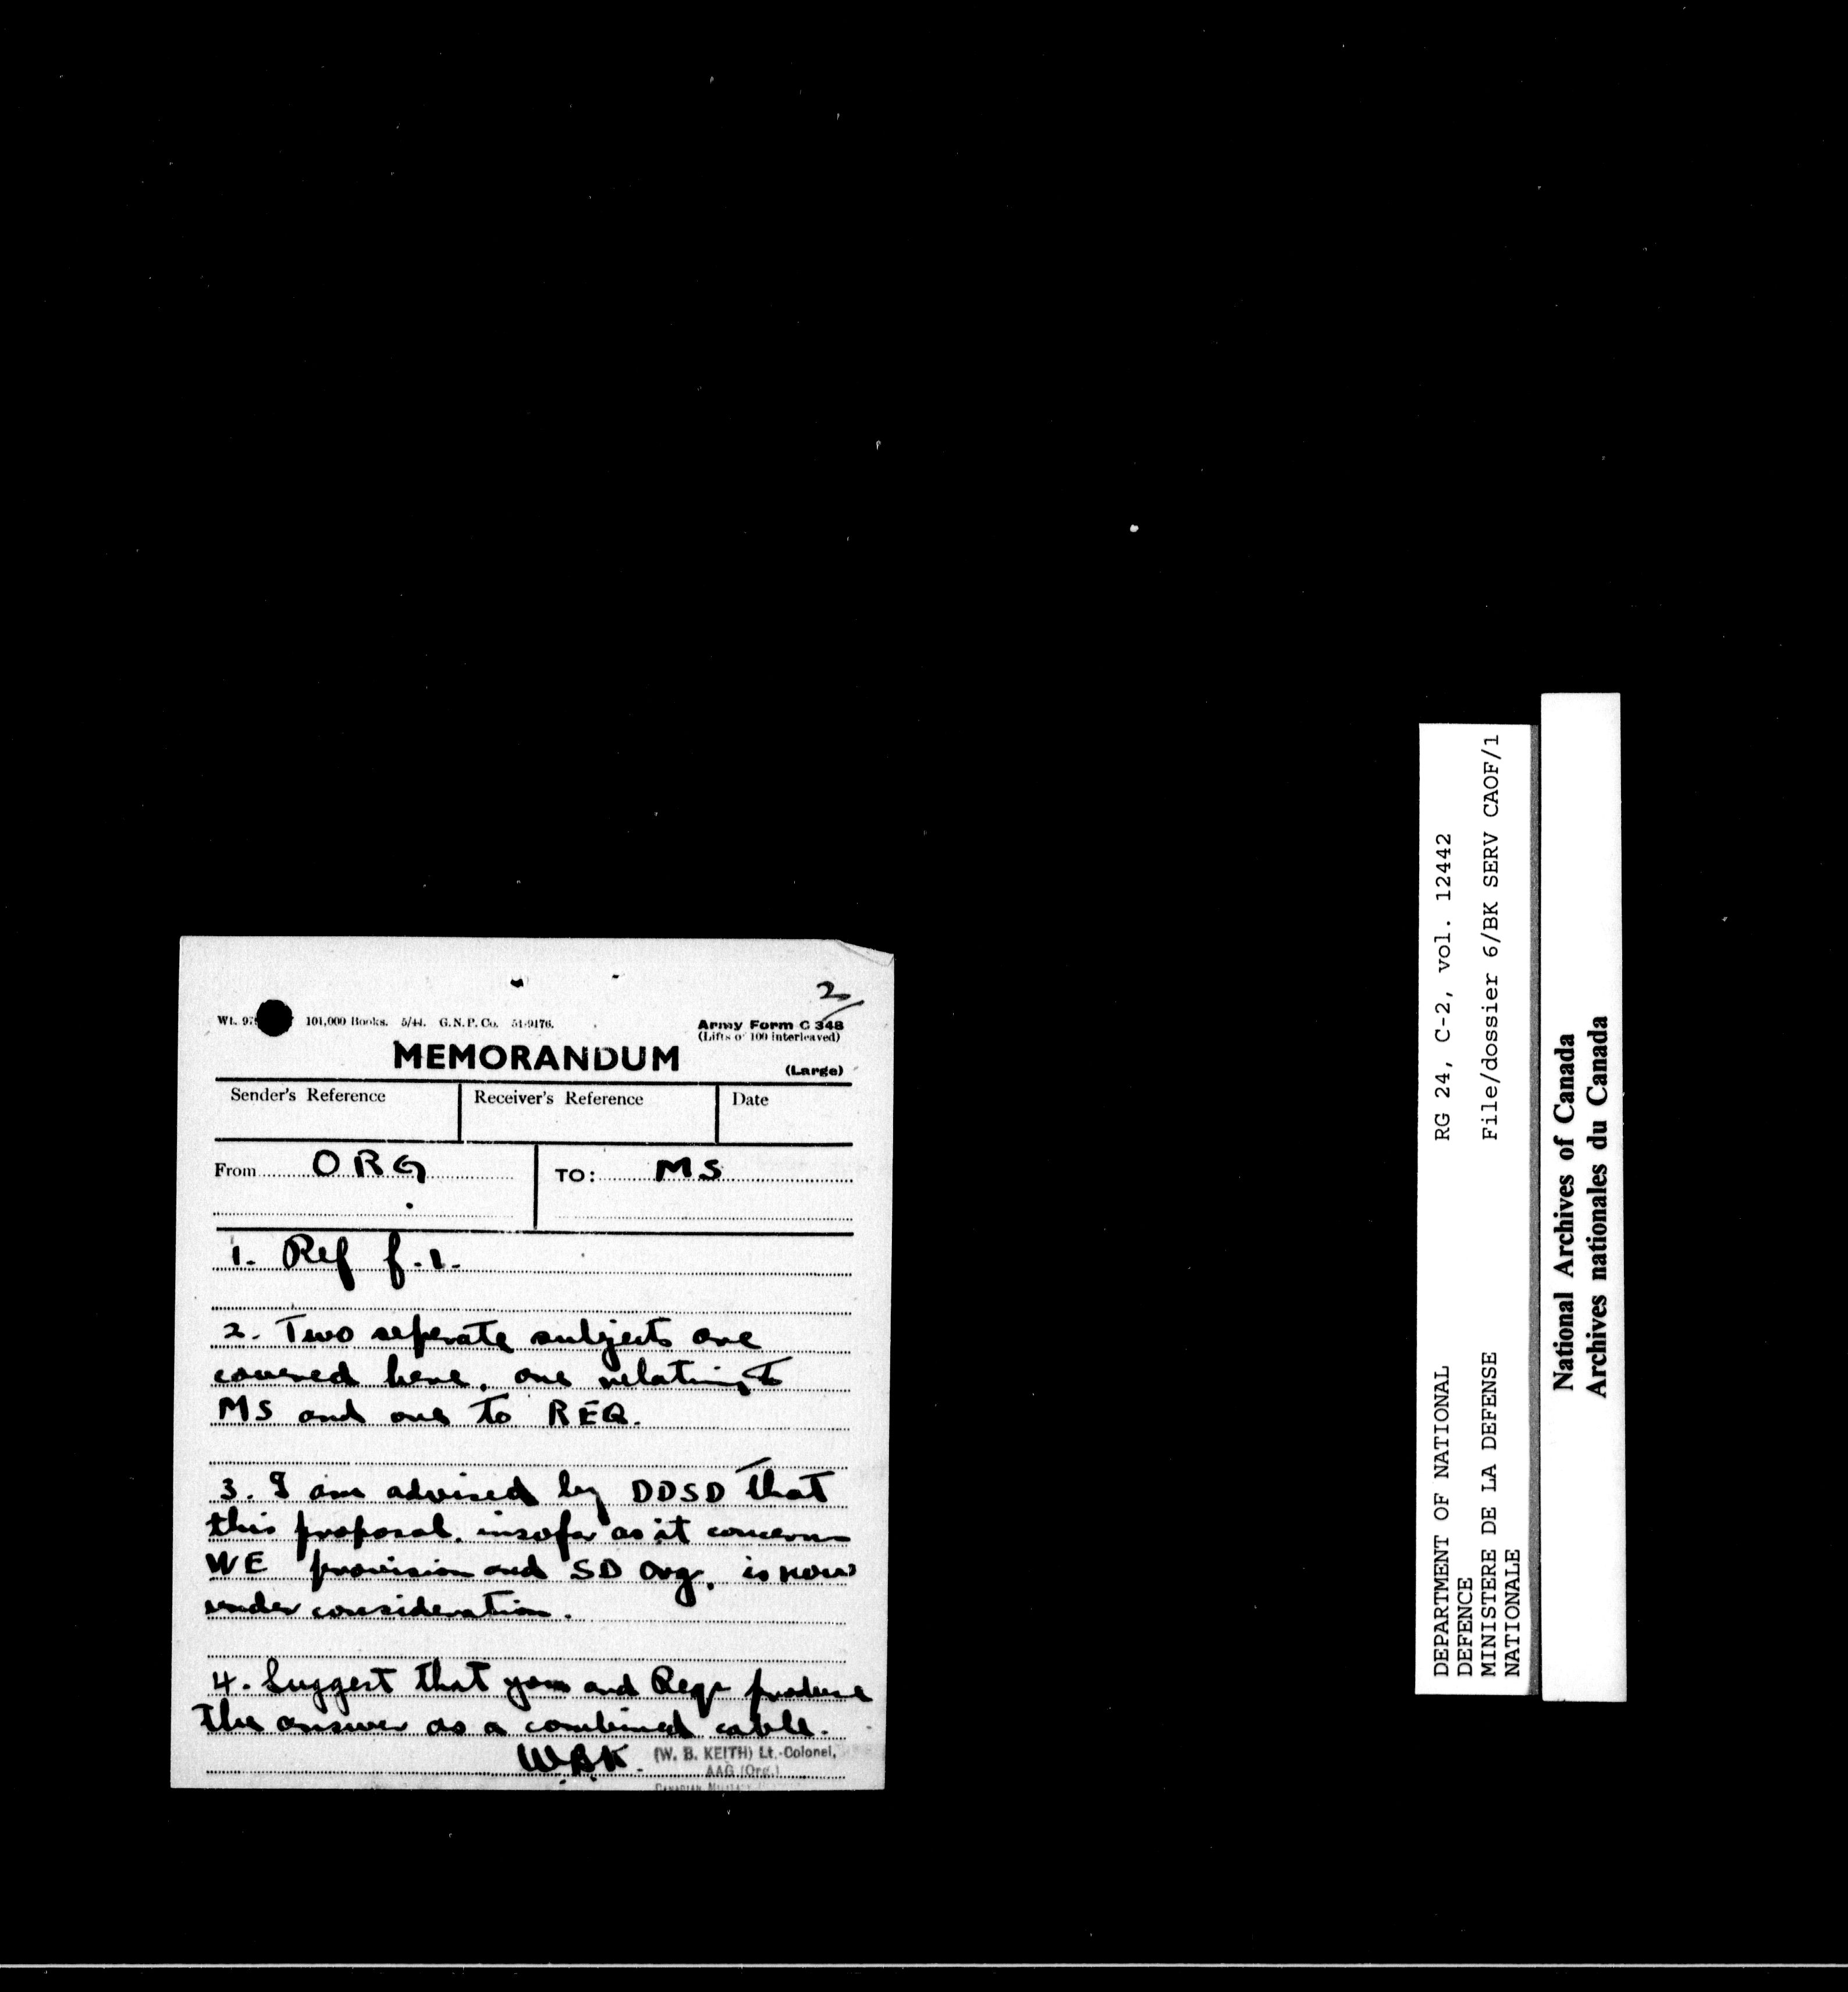 2
Wt. 101,000 Books. 5/44. G.N.P. Co. 51-9176.
Army Form C 348
(Lifts of 100 interleaved)
MEMORANDUM
(Large)
Sender's Reference
Receiver's Reference
Date
From ORG
TO: MS
1. Ref f.1.
2. Two seperate subjects are
covered here, one relating to
MS and one to REQ.
3. I am advised by DDSD that
this proposal, insofar as it concerns
WE provision and SD Org, is now
under consideration.
4. Suggest that you and Reqr produce
the answer as a combined cable.
WBK.
(W. B. KEITH) Lt.-Colonel,
AAG (Org.)
CANADIAN MILITARY
DEPARTMENT OF NATIONAL
DEFENCE
MINISTERE DE LA DEFENSE
NATIONALE
RG 24, C-2, vol. 12442
File/dossier 6/BK SERV CAOF/1
National Archives of Canada
Archives nationales du Canada